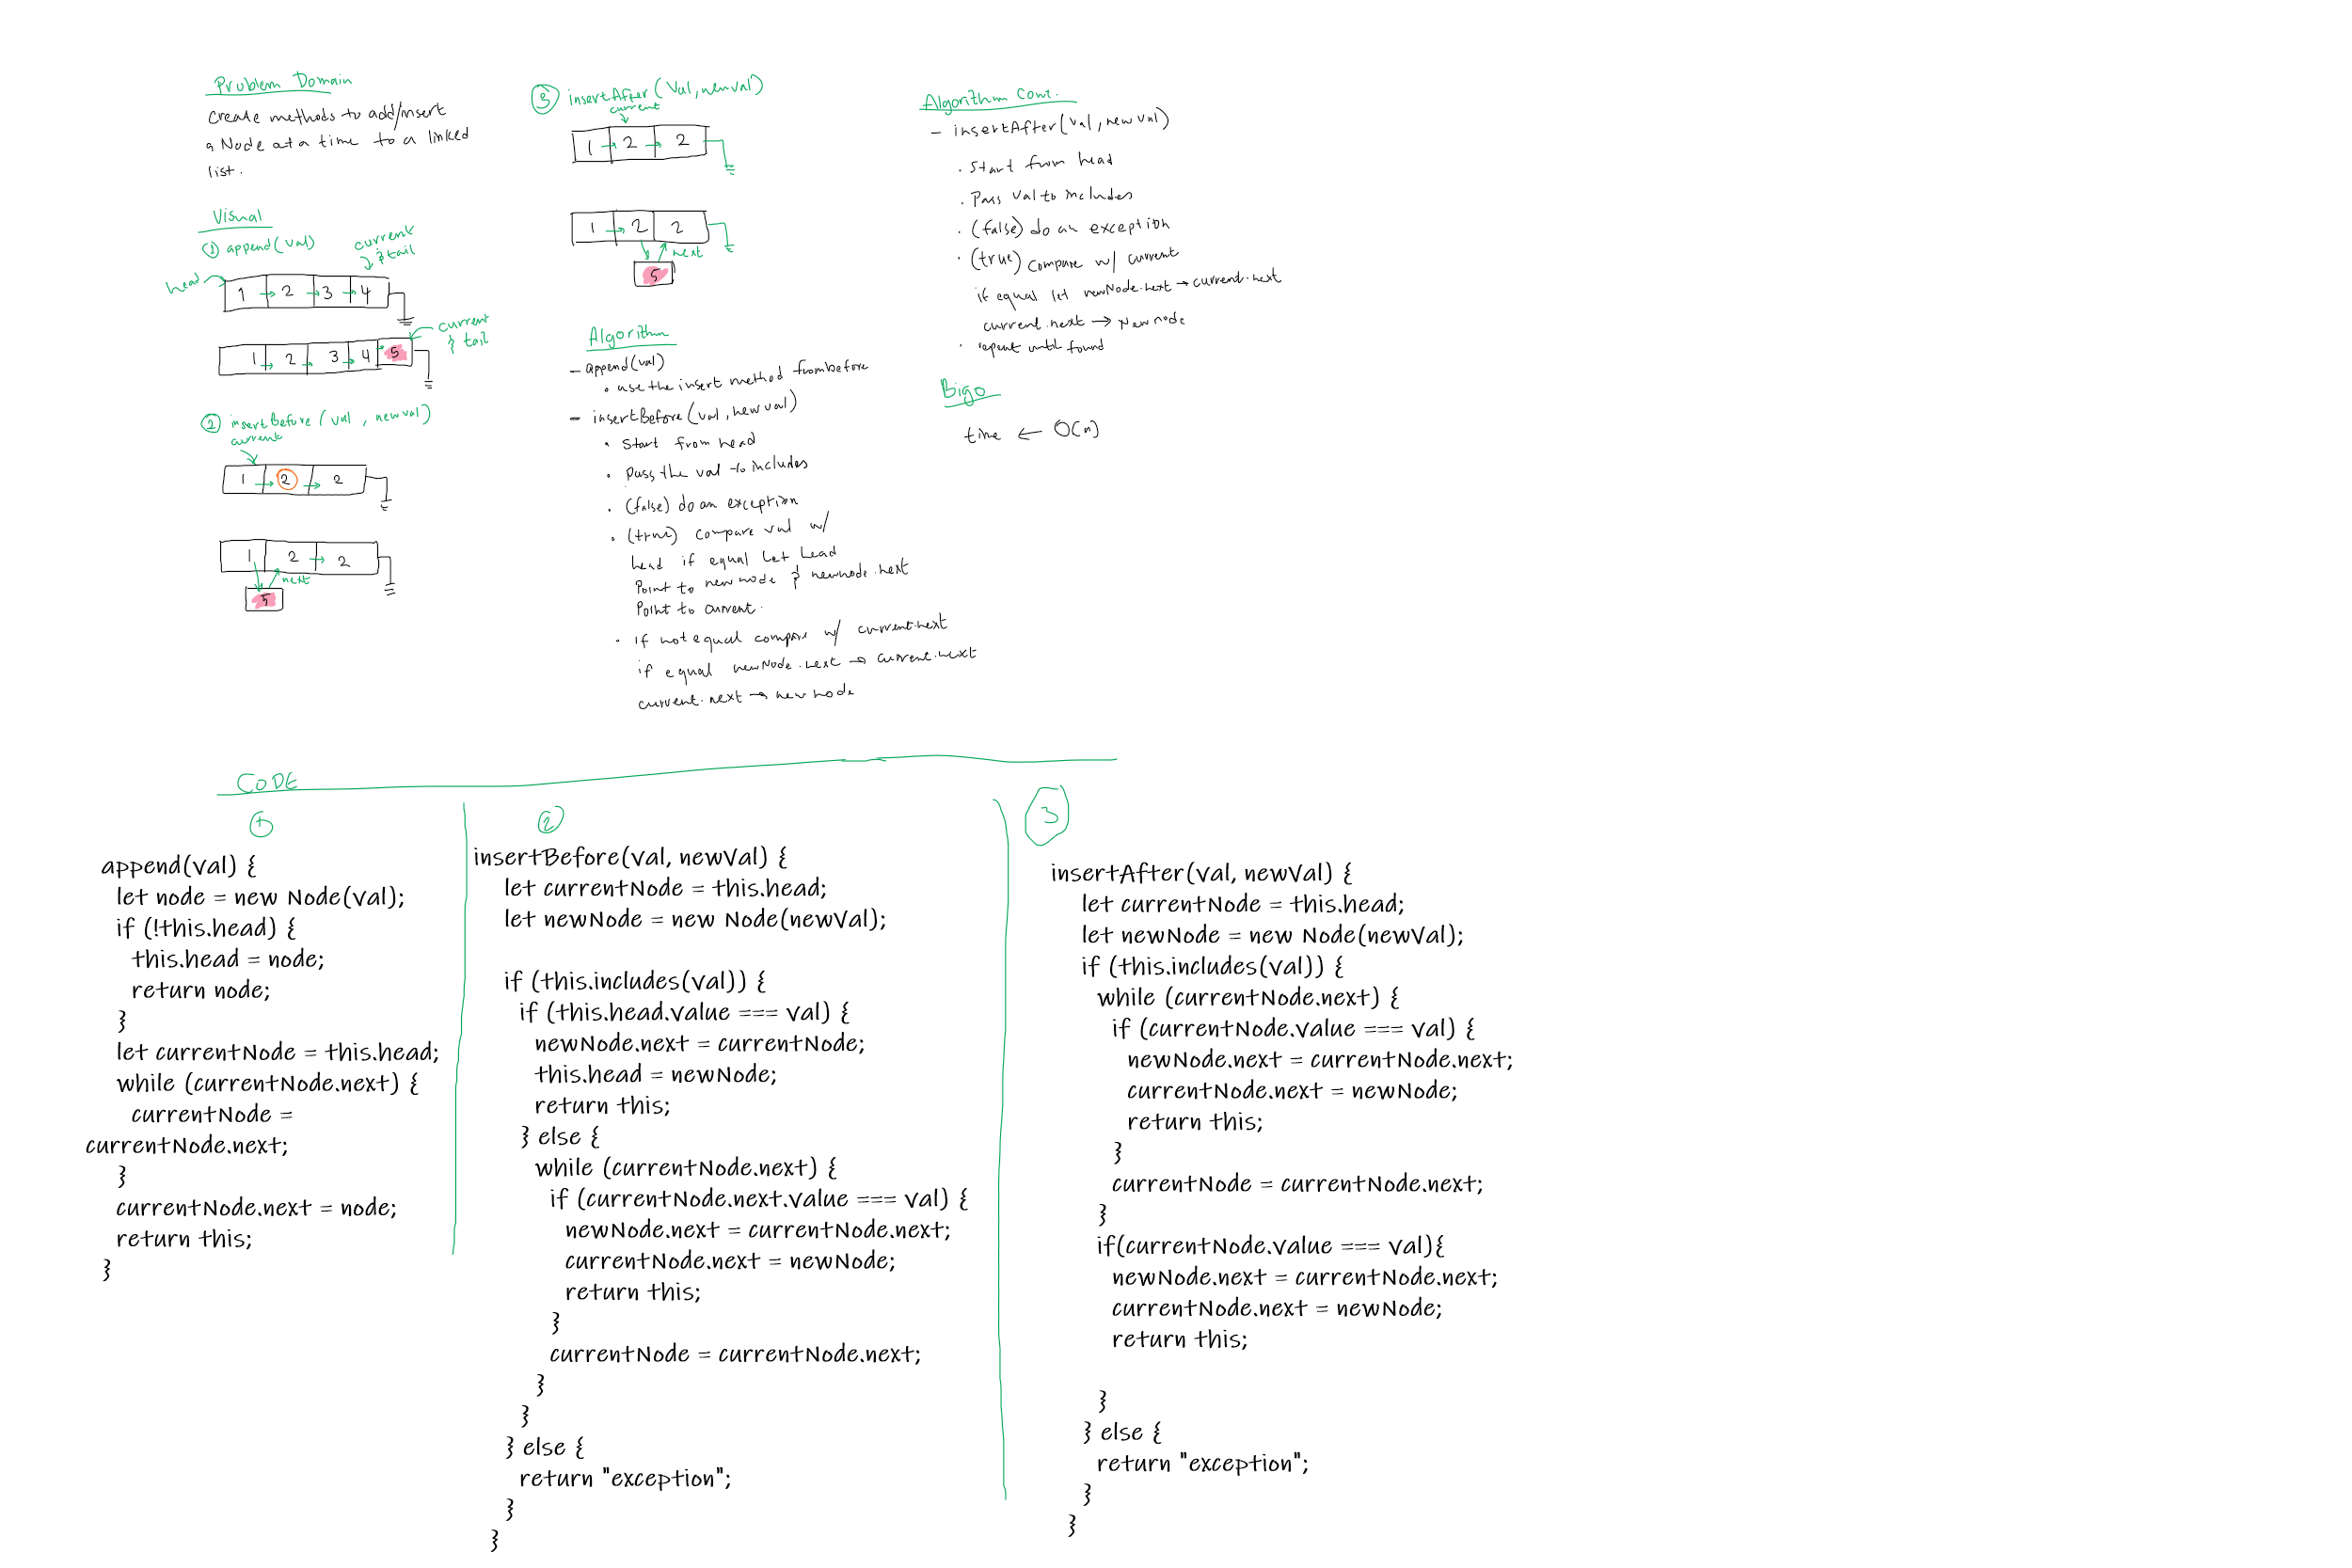 Problem Domain
Create methods to add/insert
a Node at a time to a linked
list.
Visual
① append(val)
current
& tail
head
1 → 2 → 3 → 4
current
& tail
1 → 2 → 3 → 4 → 5
② insertBefore (val, newval)
current
1 → 2 → 2
1 2 → 2
next
5
③ insertAfter (Val, newval)
current
1 → 2 → 2
1 → 2 2
next
5
Algorithm
- append(val)
• use the insert method from before
- insertBefore (val, newval)
• Start from head
• Pass the val to includes
• (false) do an exception
• (true) compare val w/
head if equal let head
Point to new node & newnode.next
Point to current.
• if not equal compare w/ current.next
if equal newNode.next → current.next
current.next → new node
Algorithm Cont.
- insertAfter (val, new val)
• Start from head
• Pass val to includes
• (false) do an exception
• (true) compare w/ current
if equal let newNode.next → current.next
current.next → New node
• repeat until found
Bigo
time ← O(n)
CODE
①
append(val) {
let node = new Node(val);
if (!this.head) {
this.head = node;
return node;
}
let currentNode = this.head;
while (currentNode.next) {
currentNode =
currentNode.next;
}
currentNode.next = node;
return this;
}
②
insertBefore(val, newVal) {
let currentNode = this.head;
let newNode = new Node(newVal);
if (this.includes(val)) {
if (this.head.value === val) {
newNode.next = currentNode;
this.head = newNode;
return this;
} else {
while (currentNode.next) {
if (currentNode.next.value === val) {
newNode.next = currentNode.next;
currentNode.next = newNode;
return this;
}
currentNode = currentNode.next;
}
}
} else {
return "exception";
}
}
③
insertAfter(val, newVal) {
let currentNode = this.head;
let newNode = new Node(newVal);
if (this.includes(val)) {
while (currentNode.next) {
if (currentNode.value === val) {
newNode.next = currentNode.next;
currentNode.next = newNode;
return this;
}
currentNode = currentNode.next;
}
if(currentNode.value === val){
newNode.next = currentNode.next;
currentNode.next = newNode;
return this;
}
} else {
return "exception";
}
}